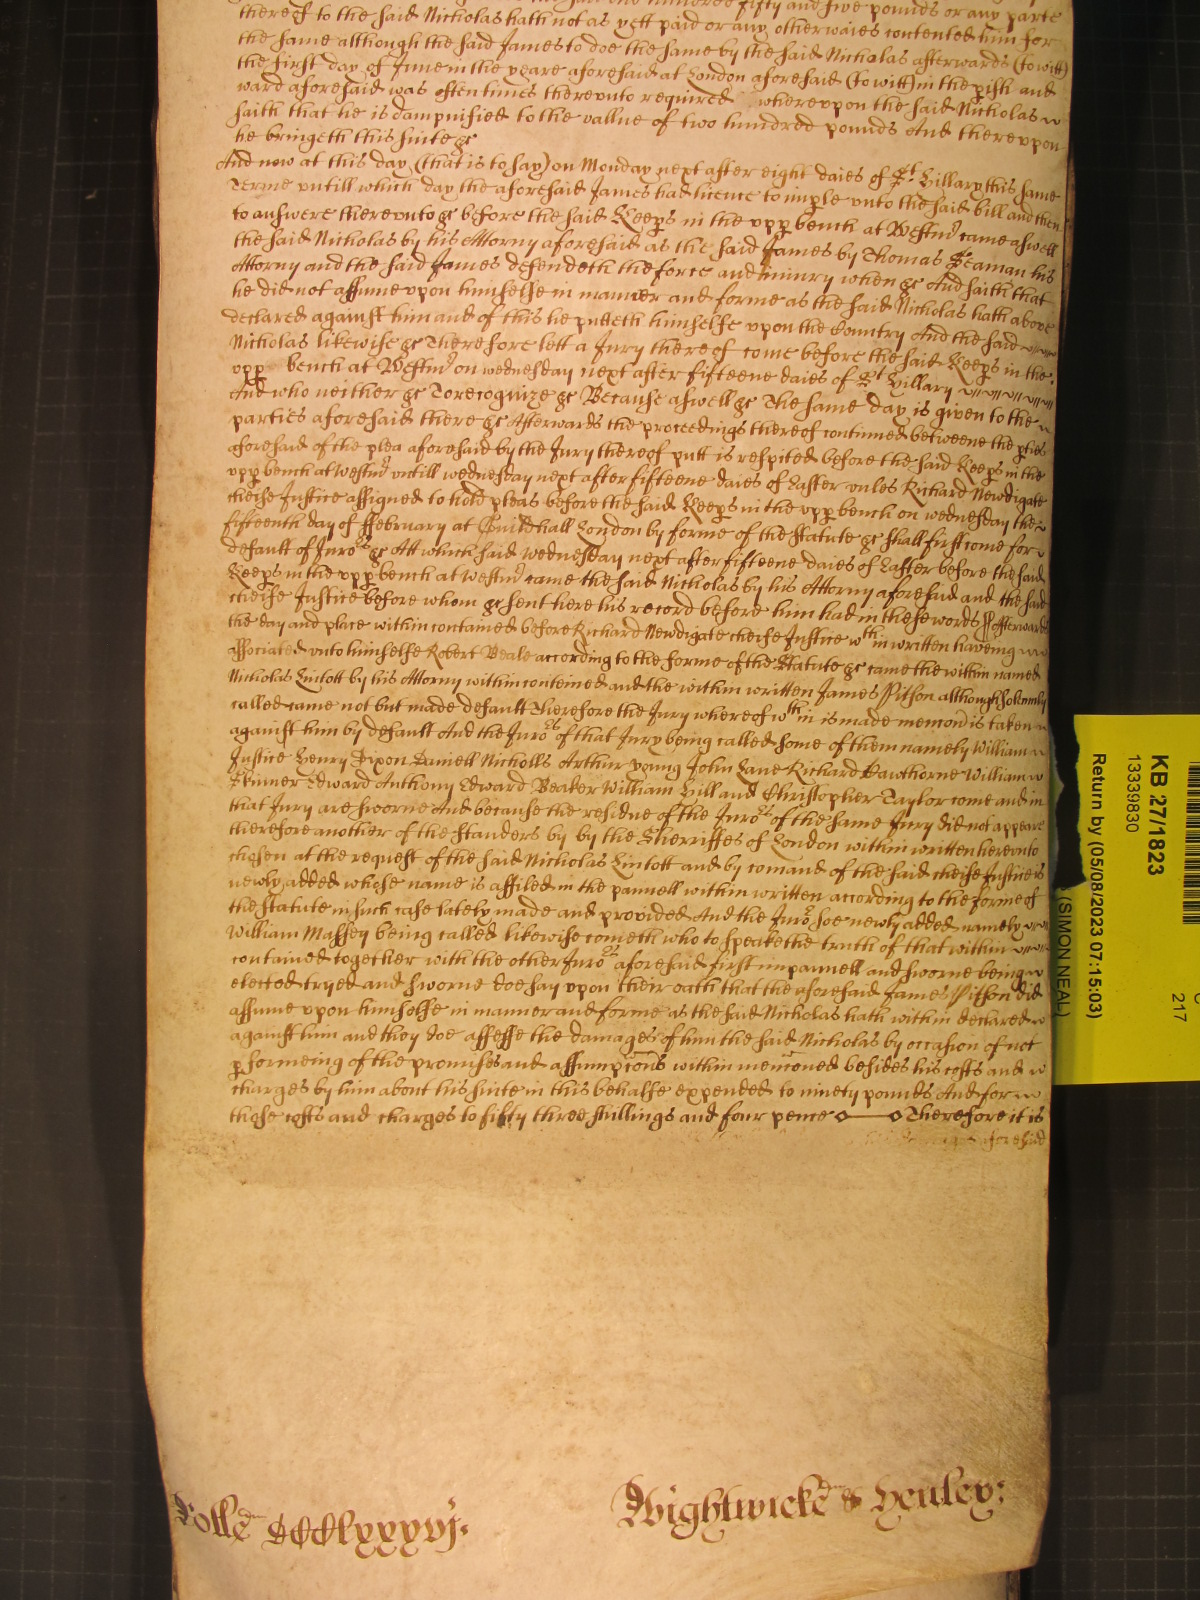 one hundred fifty and five pounds or any parte
thereof to the said Nicholas hath not as yett paid or any otherwaies contented him for
the same although the said James to doe the same by the said Nicholas afterwards (to witt)
the first day of June in the yeare aforesaid at London aforesaid (to witt) in the pish and
ward aforesaid was oftentimes therevnto required whereupon the said Nicholas
saith that he is dampnified to the vallue of two hundred pounds And thereupon
he bringeth this suite &c
And now at this day (that is to say) on Monday next after eight daies of St. Hillary this same
Terme vntill which day the aforesaid James had licence to imple vnto the said bill and then
to answere therevnto &c before the said Keeps in the vpp bench at Westm came aswell
the said Nicholas by his Attorny aforesaid as the said James by Thomas Seaman his
Attorny and the said James defendeth the force and iniury when &c And saith that
he did not assume vpon himselfe in manner and forme as the said Nicholas hath above
declared against him and of this he putteth himselfe vpon the Country And the said
Nicholas likewise &c Therefore lett a Jury thereof come before the said Keeps in the
vpp bench at Westm on wednesday next after fifteene daies of St Hillary
And who neither &c To recognize &c Because aswell &c The same day is given to the
parties aforesaid there &c Afterwards the proceedings thereof continued betweene the pties
aforesaid of the plea aforesaid by the Jury thereof putt is respited before the said Keeps in the
vpp bench at Westm vntill wednesday next after fifteene daies of Easter vnles Richard Newdigate
cheife Justice assigned to hold pleas before the said Keeps in the vpp bench on wednesday the
fifteenth day of ffebruary at Guildhall London by forme of the Statute &c shall first come for
default of Juro rs &c Att which said wednesday next after fifteene daies of Easter before the said
Keeps in the vpp bench at Westm came the said Nicholas by his Attorny aforesaid and the said
cheife Justice before whom &c sent here his record before him had in these words Afterwards
the day and place within contained before Richard Newdigate cheife Justice wth in written haveing
associated vnto himselfe Robert Beale according to the forme of the Statute &c came the within named
Nicholas Lintott by his Attorny within conteined and the within written James Pitson although solemnly
called came not but made default Therefore the Jury whereof wth in is made mencon is taken
against him by default And the Juro rs of that Jury being called some of them namely William
Justice Henry Dixon Daniell Nicholls Arthur young John Lane Richard Hawthorne William
Skinner Edward Anthony Edward Beaker William Hill and Christopher Taylor come and in
that Jury are sworne And because the residue of the Juro rs of the same Jury did not appeare
therefore another of the standers by by the Sherriffes of London within written herevnto
chosen at the request of the said Nicholas Lintott and by comand of the said cheife Justice is
newly added whose name is affiled in the pannell within written according to the forme of
the Statute in such case lately made and provided And the Juro r soe newly added namely
William Massey being called likewise cometh who to speake the truth of that within
contained together with the other Juro rs aforesaid first impannell and sworne being
elected tryed and sworne doe say vpon their oath that the aforesaid James Pitson did
assume vpon himselfe in manner and forme as the said Nicholas hath within declared
against him and they doe assesse the damages of him the said Nicholas by occasion of not
pformeing of the promises and assumpcons within mencioned besides his costs and
charges by him about his suite in this behalfe expended to ninety pounds And for
those costs and charges to fifty three shillings and four pence Therefore it is
aforesaid
Rolle CCClxxxvj.
Wightwicke & Henley:
KB 27/1823
13339830
Return by (05/08/2023 07:15:03)
(SIMON NEAL)
217